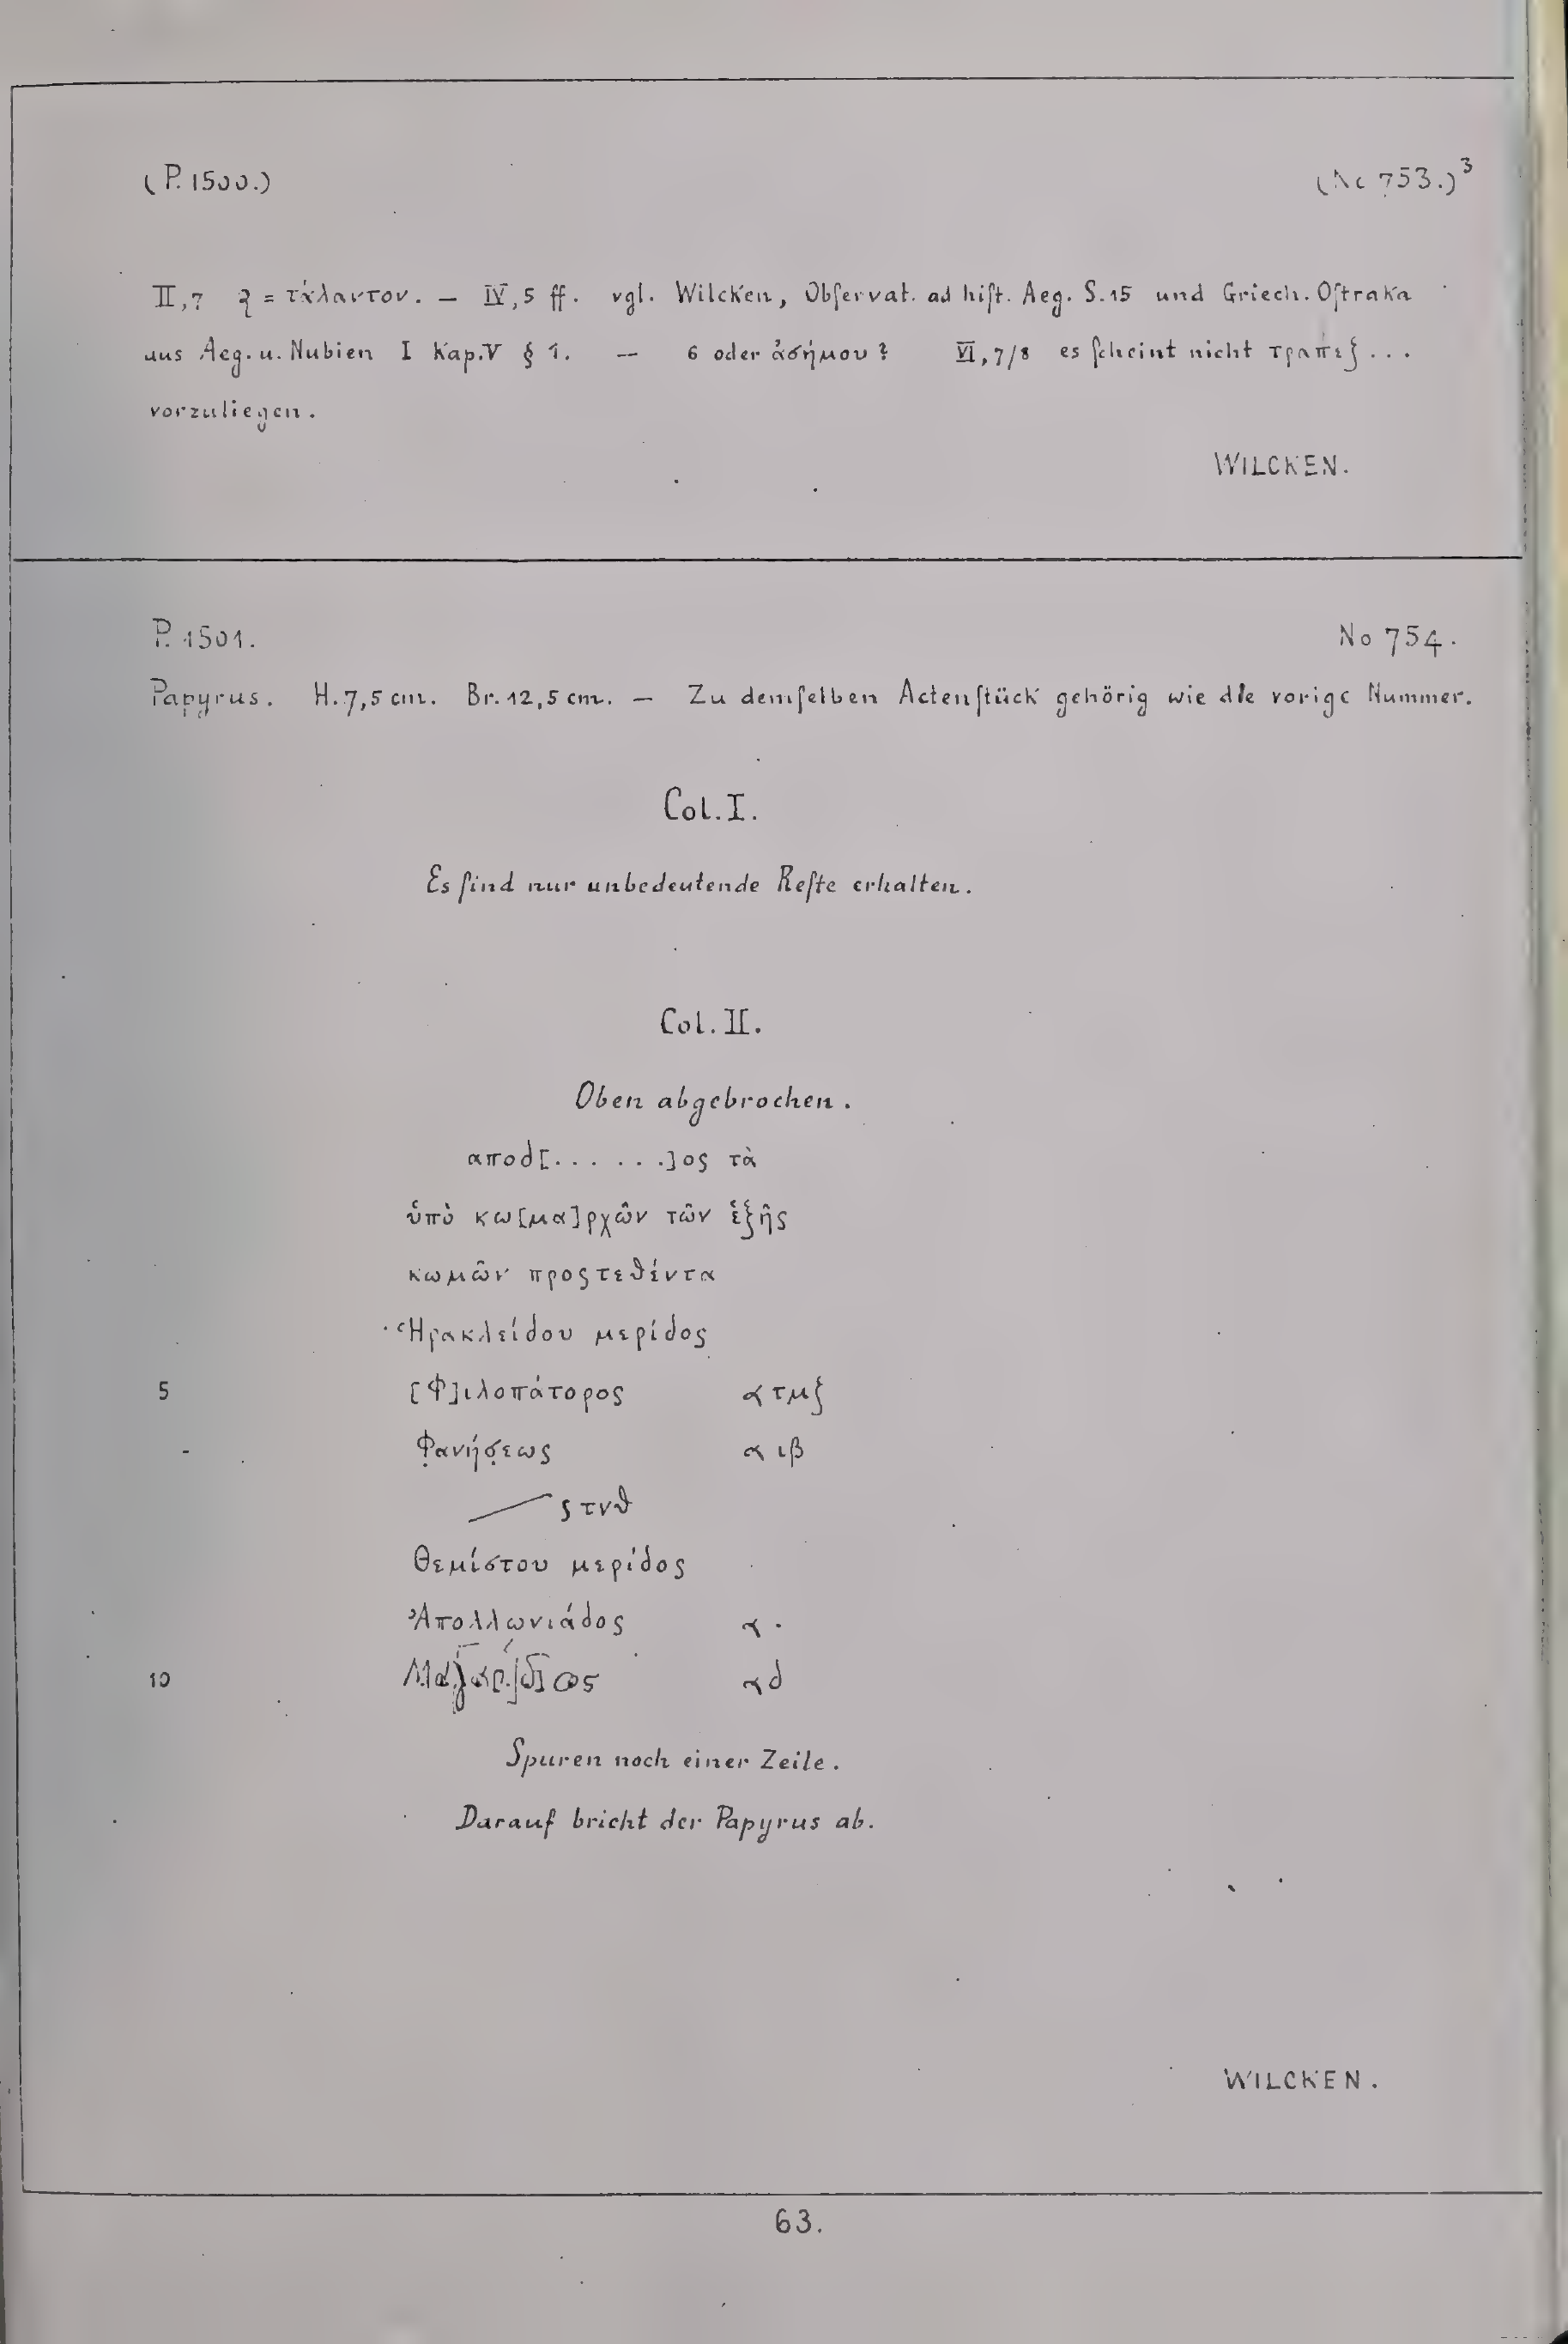 (P. 1500.) (No 753.)³
II,7 ꝛ = τάλαντον. — IV,5 ff. vgl. Wilcken, Obſervat. ad hiſt. Aeg. S.15 und Griech. Oſtraka
aus Aeg. u. Nubien I Kap.V § 1. — 6 oder ἀσήμου? VI,7/8 es ſcheint nicht τραπεζ...
vorzuliegen.
WILCKEN.
P. 1501. No 754.
Papyrus. H. 7,5 cm. Br. 12,5 cm. — Zu demſelben Actenſtück gehörig wie die vorige Nummer.
Col. I.
Es ſind nur unbedeutende Reſte erhalten.
Col. II.
Oben abgebrochen.
αποδ[. . . . . .]ος τὰ
ὑπὸ κω[μα]ρχῶν τῶν ἑξῆς
κωμῶν προςτεθέντα
Ἡρακλείδου μερίδος
5 [Φ]ιλοπάτορος α τμζ
Φ̣ανήσ̣εως α ιβ
ς τνθ
Θεμίστου μερίδος
Ἀπολλωνιάδος α .
10 αδ
Spuren noch einer Zeile.
Darauf bricht der Papyrus ab.
WILCKEN.
63.